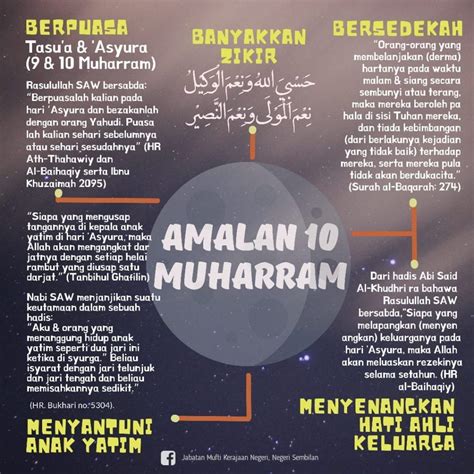 BERPUASA
Tasu'a & 'Asyura
(9 & 10 Muharram)
Rasulullah SAW bersabda:
"Berpuasalah kalian pada
hari 'Asyura dan bezakanlah
dengan orang Yahudi. Puasa
lah kalian sehari sebelumnya
atau sehari sesudahnya" (HR
Ath-Thahawiy dan
Al-Baihaqiy serta Ibnu
Khuzaimah 2095)
BANYAKKAN
ZIKIR
حَسْبِيَ اللهُ وَنِعْمَ الْوَكِيْلُ
نِعْمَ الْمَوْلَى وَنِعْمَ النَّصِيْر
BERSEDEKAH
"Orang-orang yang
membelanjakan (derma)
hartanya pada waktu
malam & siang secara
sembunyi atau terang,
maka mereka beroleh pa
hala di sisi Tuhan mereka,
dan tiada kebimbangan
(dari berlakunya kejadian
yang tidak baik) terhadap
mereka, serta mereka pula
tidak akan berdukacita."
(Surah al-Baqarah: 274)
AMALAN 10
MUHARRAM
"Siapa yang mengusap
tangannya di kepala anak
yatim di hari 'Asyura, maka
Allah akan mengangkat dar
jatnya dengan setiap helai
rambut yang diusap satu
darjat." (Tanbihul Ghafilin)
Nabi SAW menjanjikan suatu
keutamaan dalam sebuah
hadis:
"Aku & orang yang
menanggung hidup anak
yatim seperti dua jari ini
ketika di syurga." Beliau
isyarat dengan jari telunjuk
dan jari tengah dan beliau
memisahkannya sedikit,"
(HR. Bukhari no.5304).
MENYANTUNI
ANAK YATIM
Dari hadis Abi Said
Al-Khudhri ra bahawa
Rasulullah SAW
bersabda,"Siapa yang
melapangkan (menyen
angkan) keluarganya pada
hari 'Asyura, maka Allah
akan meluaskan rezekinya
selama setahun. (HR
al-Baihaqiy)
MENYENANGKAN
HATI AHLI
KELUARGA
Jabatan Mufti Kerajaan Negeri, Negeri Sembilan